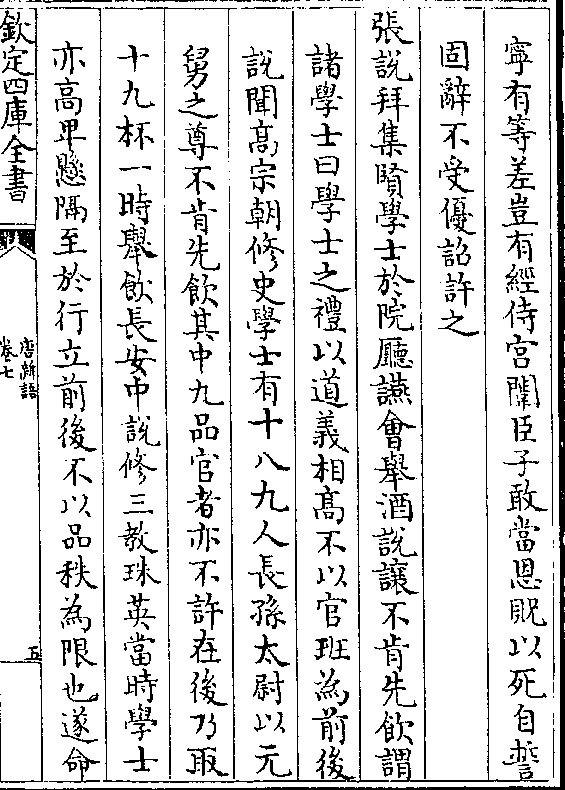 寧有等差豈有經侍宫闈臣子敢當恩貺以死自誓
固辭不受優詔許之
張說拜集賢學士於院廳讌會舉酒說讓不肯先飲謂
諸學士曰學士之禮以道義相髙不以官班為前後
說聞髙宗朝修史學士有十八九人長孫太尉以元
舅之尊不肯先飲其中九品官者亦不許在後乃取
十九杯一時舉飲長安中說修三教珠英當時學士
亦高卑懸隔至於行立前後不以品秩為限也遂命
欽定四庫全書
唐新語
卷七
五